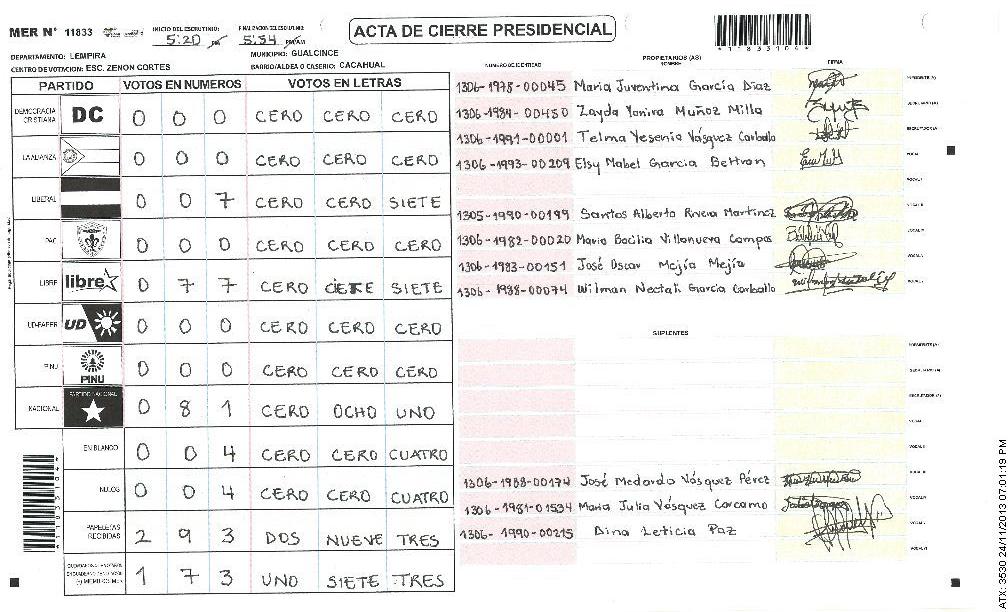 MER N° 11833
INICIO DEL ESCRUTINIO: 5:20 PM
FINALIZACION DEL ESCRUTINIO: 5:54 PM/AM
ACTA DE CIERRE PRESIDENCIAL
*11833104*
DEPARTAMENTO: LEMPIRA
MUNICIPIO: GUALCINCE
CENTRO DE VOTACION: ESC. ZENON CORTES
BARRIO/ALDEA O CASERIO: CACAHUAL
PARTIDO VOTOS EN NUMEROS VOTOS EN LETRAS
DEMOCRACIA CRISTIANA DC 0 0 0 CERO CERO CERO
LA ALIANZA 0 0 0 CERO CERO CERO
LIBERAL 0 0 7 CERO CERO SIETE
PAC 0 0 0 CERO CERO CERO
LIBRE libre 0 7 7 CERO CIETE SIETE
UD-FAPER UD 0 0 0 CERO CERO CERO
PINU PINU 0 0 0 CERO CERO CERO
NACIONAL PARTIDO NACIONAL 0 8 1 CERO OCHO UNO
EN BLANCO 0 0 4 CERO CERO CUATRO
NULOS 0 0 4 CERO CERO CUATRO
PAPELETAS RECIBIDAS 2 9 3 DOS NUEVE TRES
1 7 3 UNO SIETE TRES
PROPIETARIOS (AS)
NUMERO DE IDENTIDAD NOMBRE FIRMA
1306-1978-00045 Maria Juventina García Díaz PRESIDENTE (A)
1306-1984-00450 Zayda Yanira Muñoz Milla SECRETARIO (A)
1306-1991-00001 Telma Yesenia Vásquez Carballo ESCRUTADOR (A)
1306-1993-00209 Elsy Mabel Garcia Beltran VOCAL I
1305-1990-00199 Santos Alberto Rivera Martinez
1306-1982-00020 Maria Basilia Villanueva Campos
1306-1983-00151 José Oscar Mejía Mejía
1306-1988-00074 Wilman Nectali Garcia Carballo
SUPLENTES
PRESIDENTE (A)
SECRETARIO (A)
ESCRUTADOR (A)
1306-1988-00174 José Medardo Vásquez Pérez
1306-1981-01534 Maria Julia Vásquez Carcamo
1306-1990-00215 Dina Leticia Paz
ATX: 3530 24/11/2013 07:01:19 PM